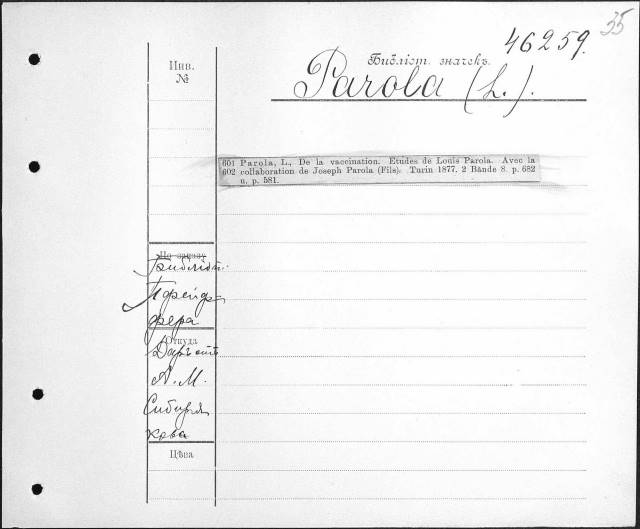 35
46259.
Инв.
№
Библіот. значекъ.
Parola (L.).
601 Parola, L., De la vaccination. Etudes de Louis Parola. Avec la
602 collaboration de Joseph Parola (Fils). Turin 1877. 2 Bände 8. p. 682
u. p. 581.
По заказу
Библіот.
Пфейф-
фера
Откуда
Даръ отъ
А. М.
Сибиря
кова
Цѣна